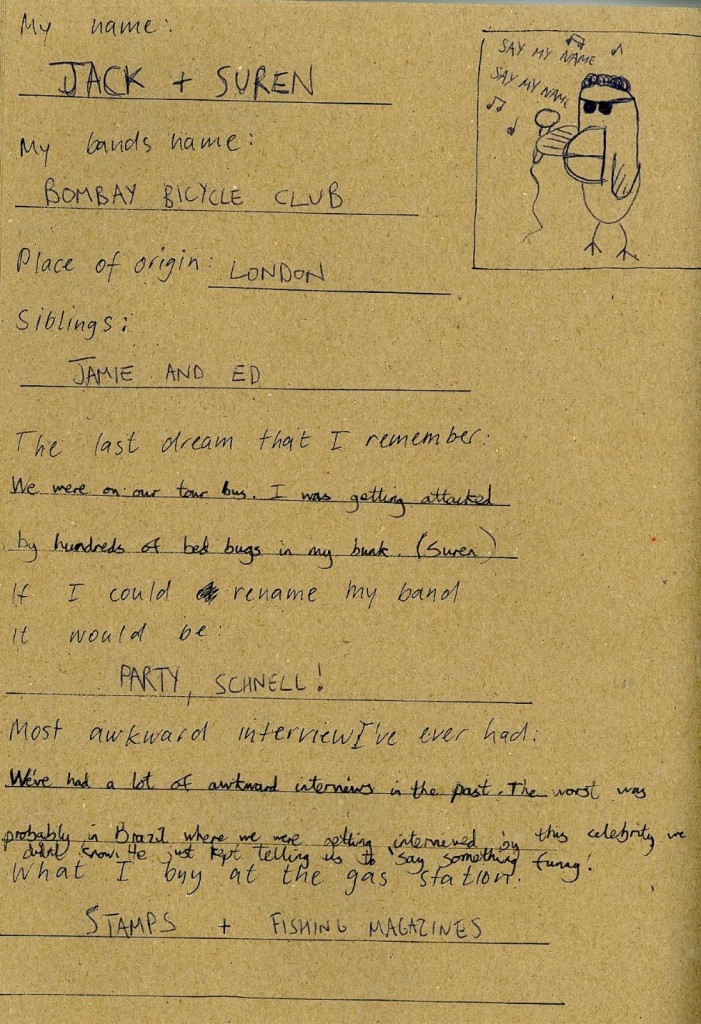 My name:
JACK + SUREN
SAY MY NAME
SAY MY NAME
My bands name:
BOMBAY BICYCLE CLUB
Place of origin: LONDON
Siblings:
JAMIE AND ED
The last dream that I remember:
We were on our tour bus. I was getting attacked
by hundreds of bed bugs in my bunk. (Suren)
If I could rename my band
it would be:
PARTY, SCHNELL!
Most awkward interview I've ever had:
We've had a lot of awkward interviews in the past. The worst was
probably in Brazil where we were getting interviewed by this celebrity we
didnt know. He just kept telling us to "say something funny!
What I buy at the gas station:
STAMPS + FISHING MAGAZINES